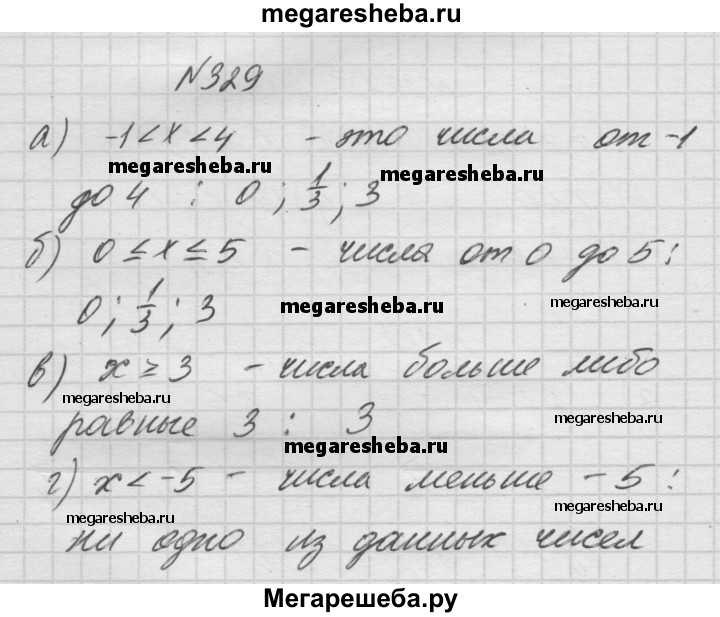 megaresheba.ru
№329
а) -1<x<4 - это числа от -1
megaresheba.ru megaresheba.ru
до 4 : 0 ; 1/3 ; 3
б) 0 ≤ x ≤ 5 - числа от 0 до 5 :
0 ; 1/3 ; 3 megaresheba.ru megaresheba.ru
в) x ≥ 3 - числа больше либо
megaresheba.ru
равные 3 : 3 megaresheba.ru
megaresheba.ru
г) x < -5 - числа меньше -5 :
megaresheba.ru megaresheba.ru
ни одно из данных чисел
Мегарешеба.ру